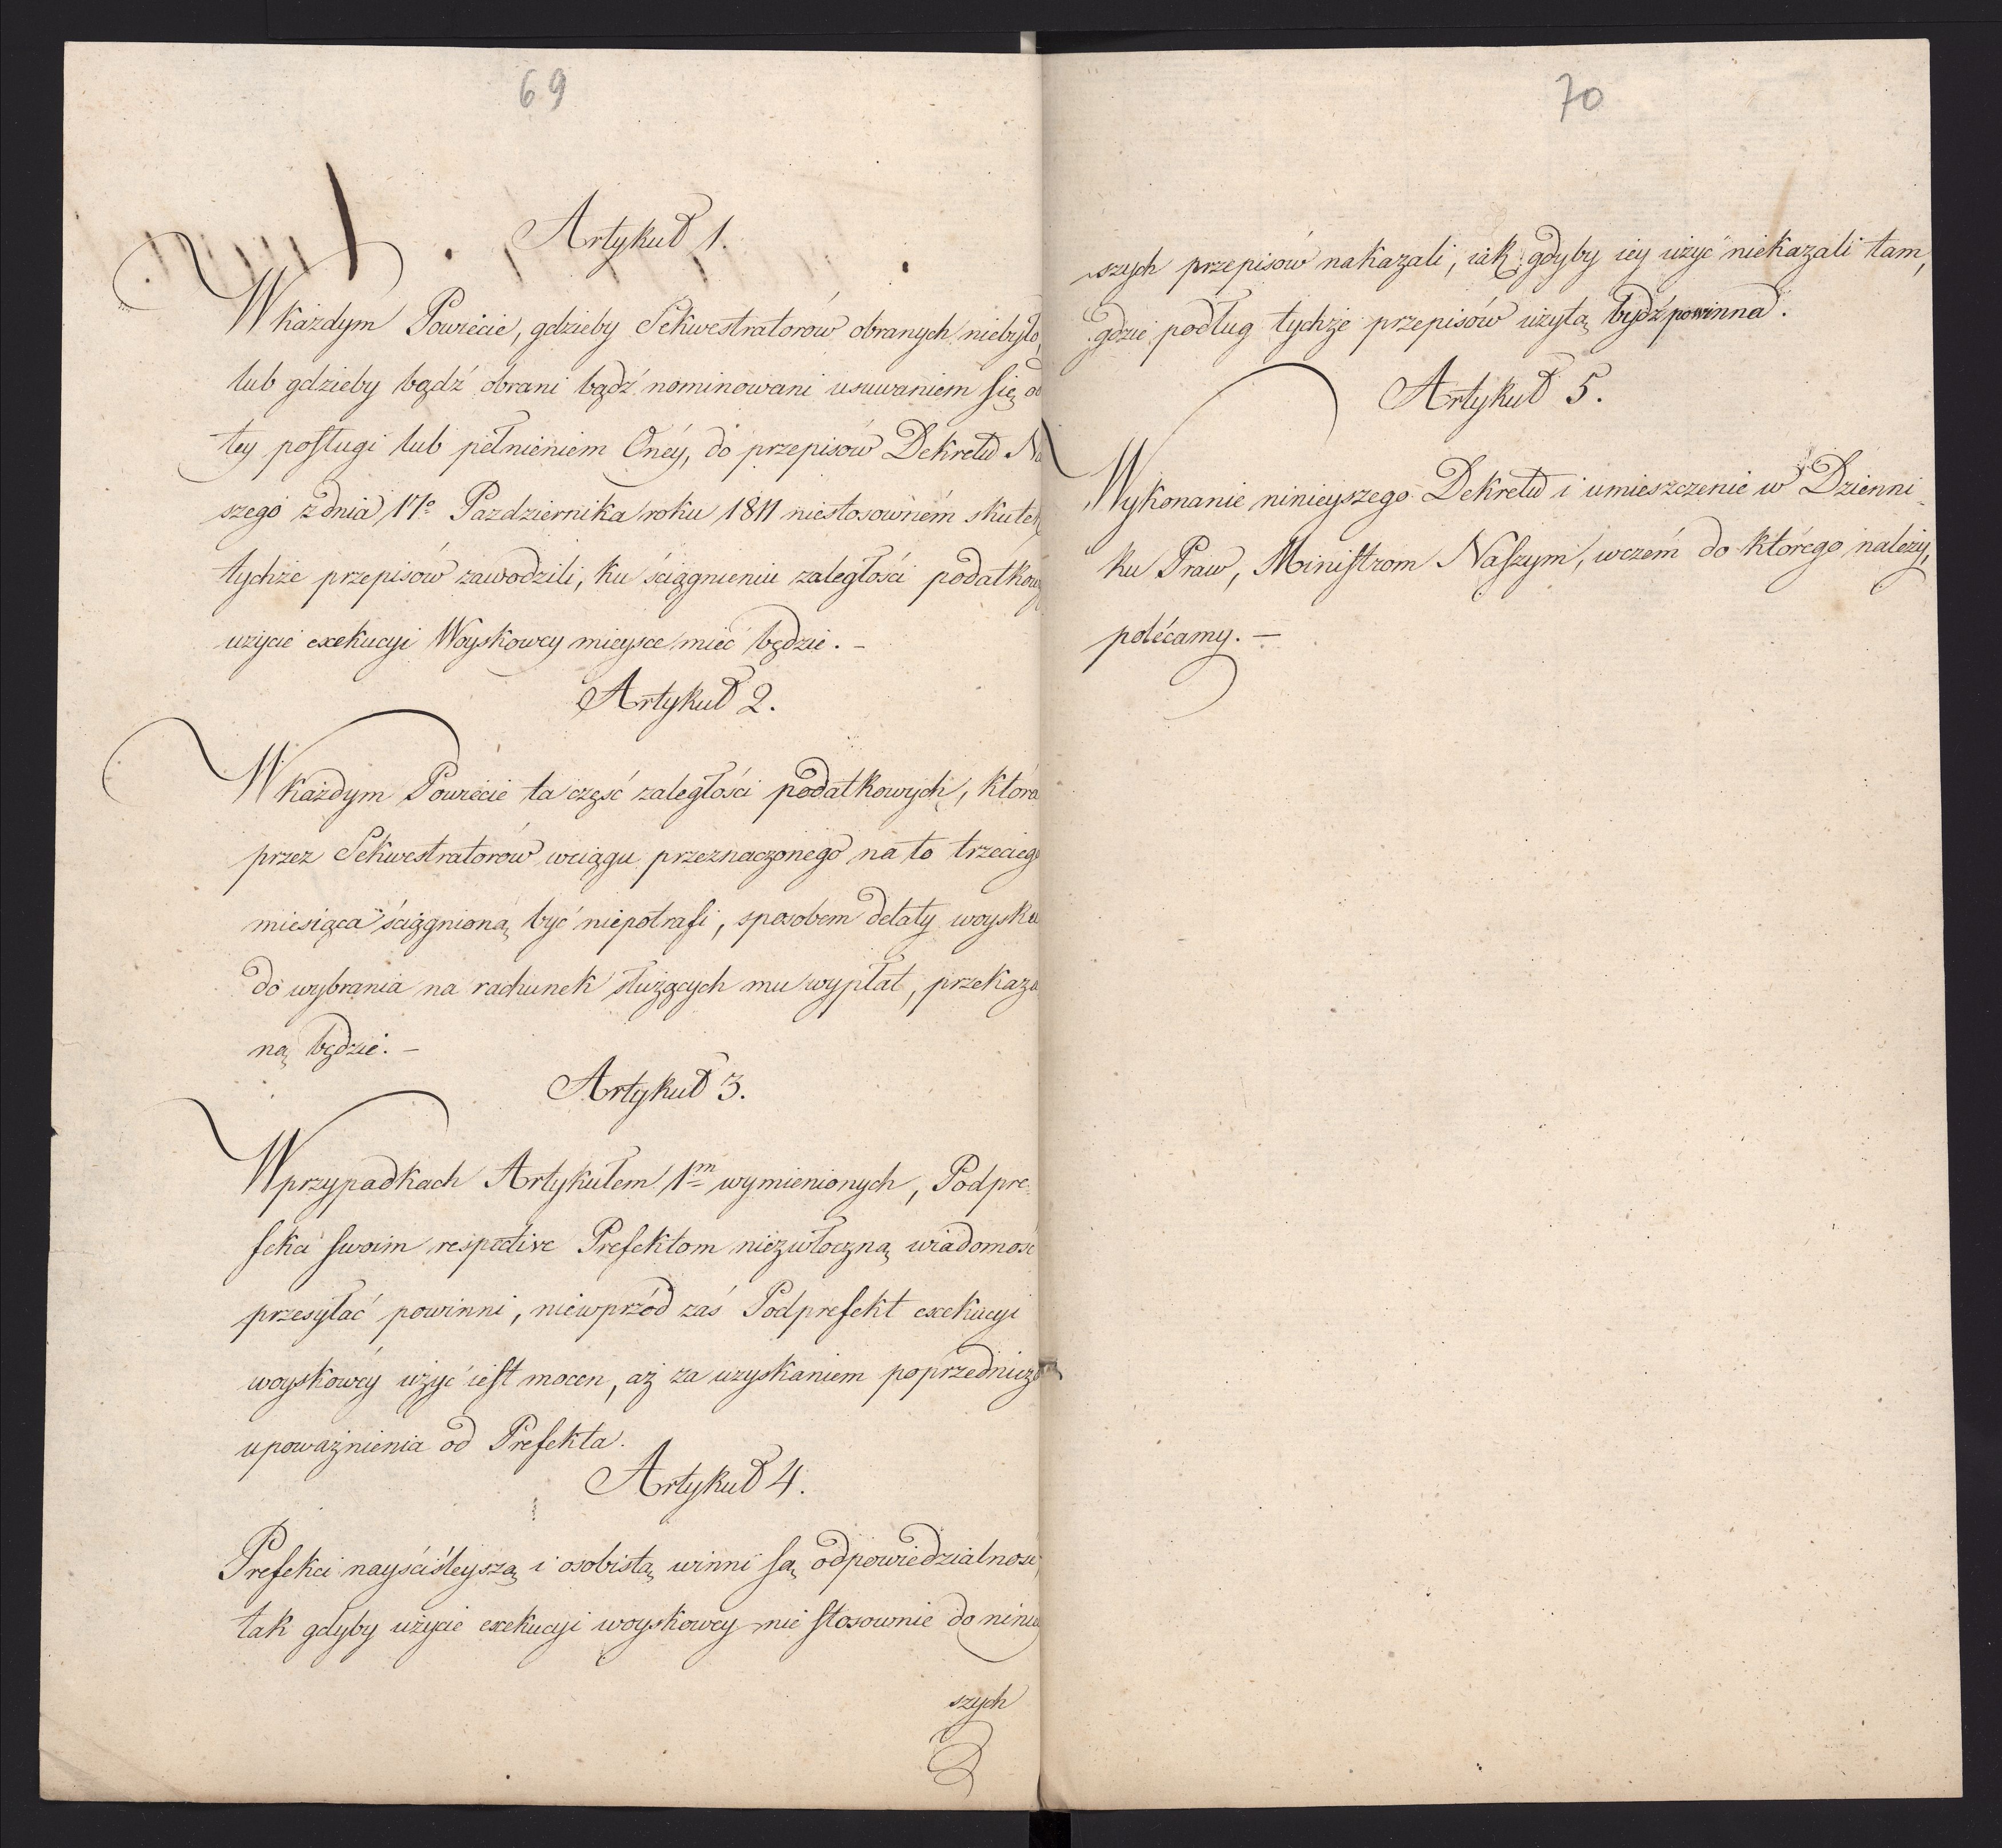 69
Artykuł 1.
W każdym Powiecie, gdzieby Sekwestratorów obranych niebyło,
lub gdzieby bądź obrani bądź nominowani usuwaniem się od
tey posługi lub pełnieniem Oney, do przepisów Dekretu Na
szego z dnia 17º Pazdziernika roku 1811 niestosownem skutek
tychże przepisów zawodzili, ku ściągnieniu zaległości podatkowy
użycie exekucyi Woyskowey mieysce mieć będzie. –
Artykuł 2.
W każdym Powiecie ta część zaległości podatkowych, która
przez Sekwestratorów wciągu przeznaczonego na to trzeciego
miesiąca ściągnioną być niepotrafi, sposobem delaty woysku
do wybrania na rachunek służących mu wypłat, przekaza
ną będzie. –
Artykuł 3.
W przypadkach Artykułem 1m wymienionych, Podpre-
fekci swoim respective Prefektom niezwłoczną wiadomość
przesyłać powinni, niewprzód zaś Podprefekt exekucyi
woyskowéy użyć iest mocen, aż za uzyskaniem poprzednicze
upoważnienia od Prefekta.
Artykuł 4.
Prefekci nayściśleyszą i osobistą winni są odpowiedzialność,
tak gdyby użycie exekucyi woyskowey nie stosownie do niniey
szych
70
szych przepisów nakazali, iak gdyby iey użyć niekazali tam,
gdzie podług tychże przepisów użytą bydź powinna.
Artykuł 5.
Wykonanie ninieyszego Dekretu i umieszczenie w Dzienni-
ku Praw, Ministrom Naszym, wczém do którego należy,
polécamy. –